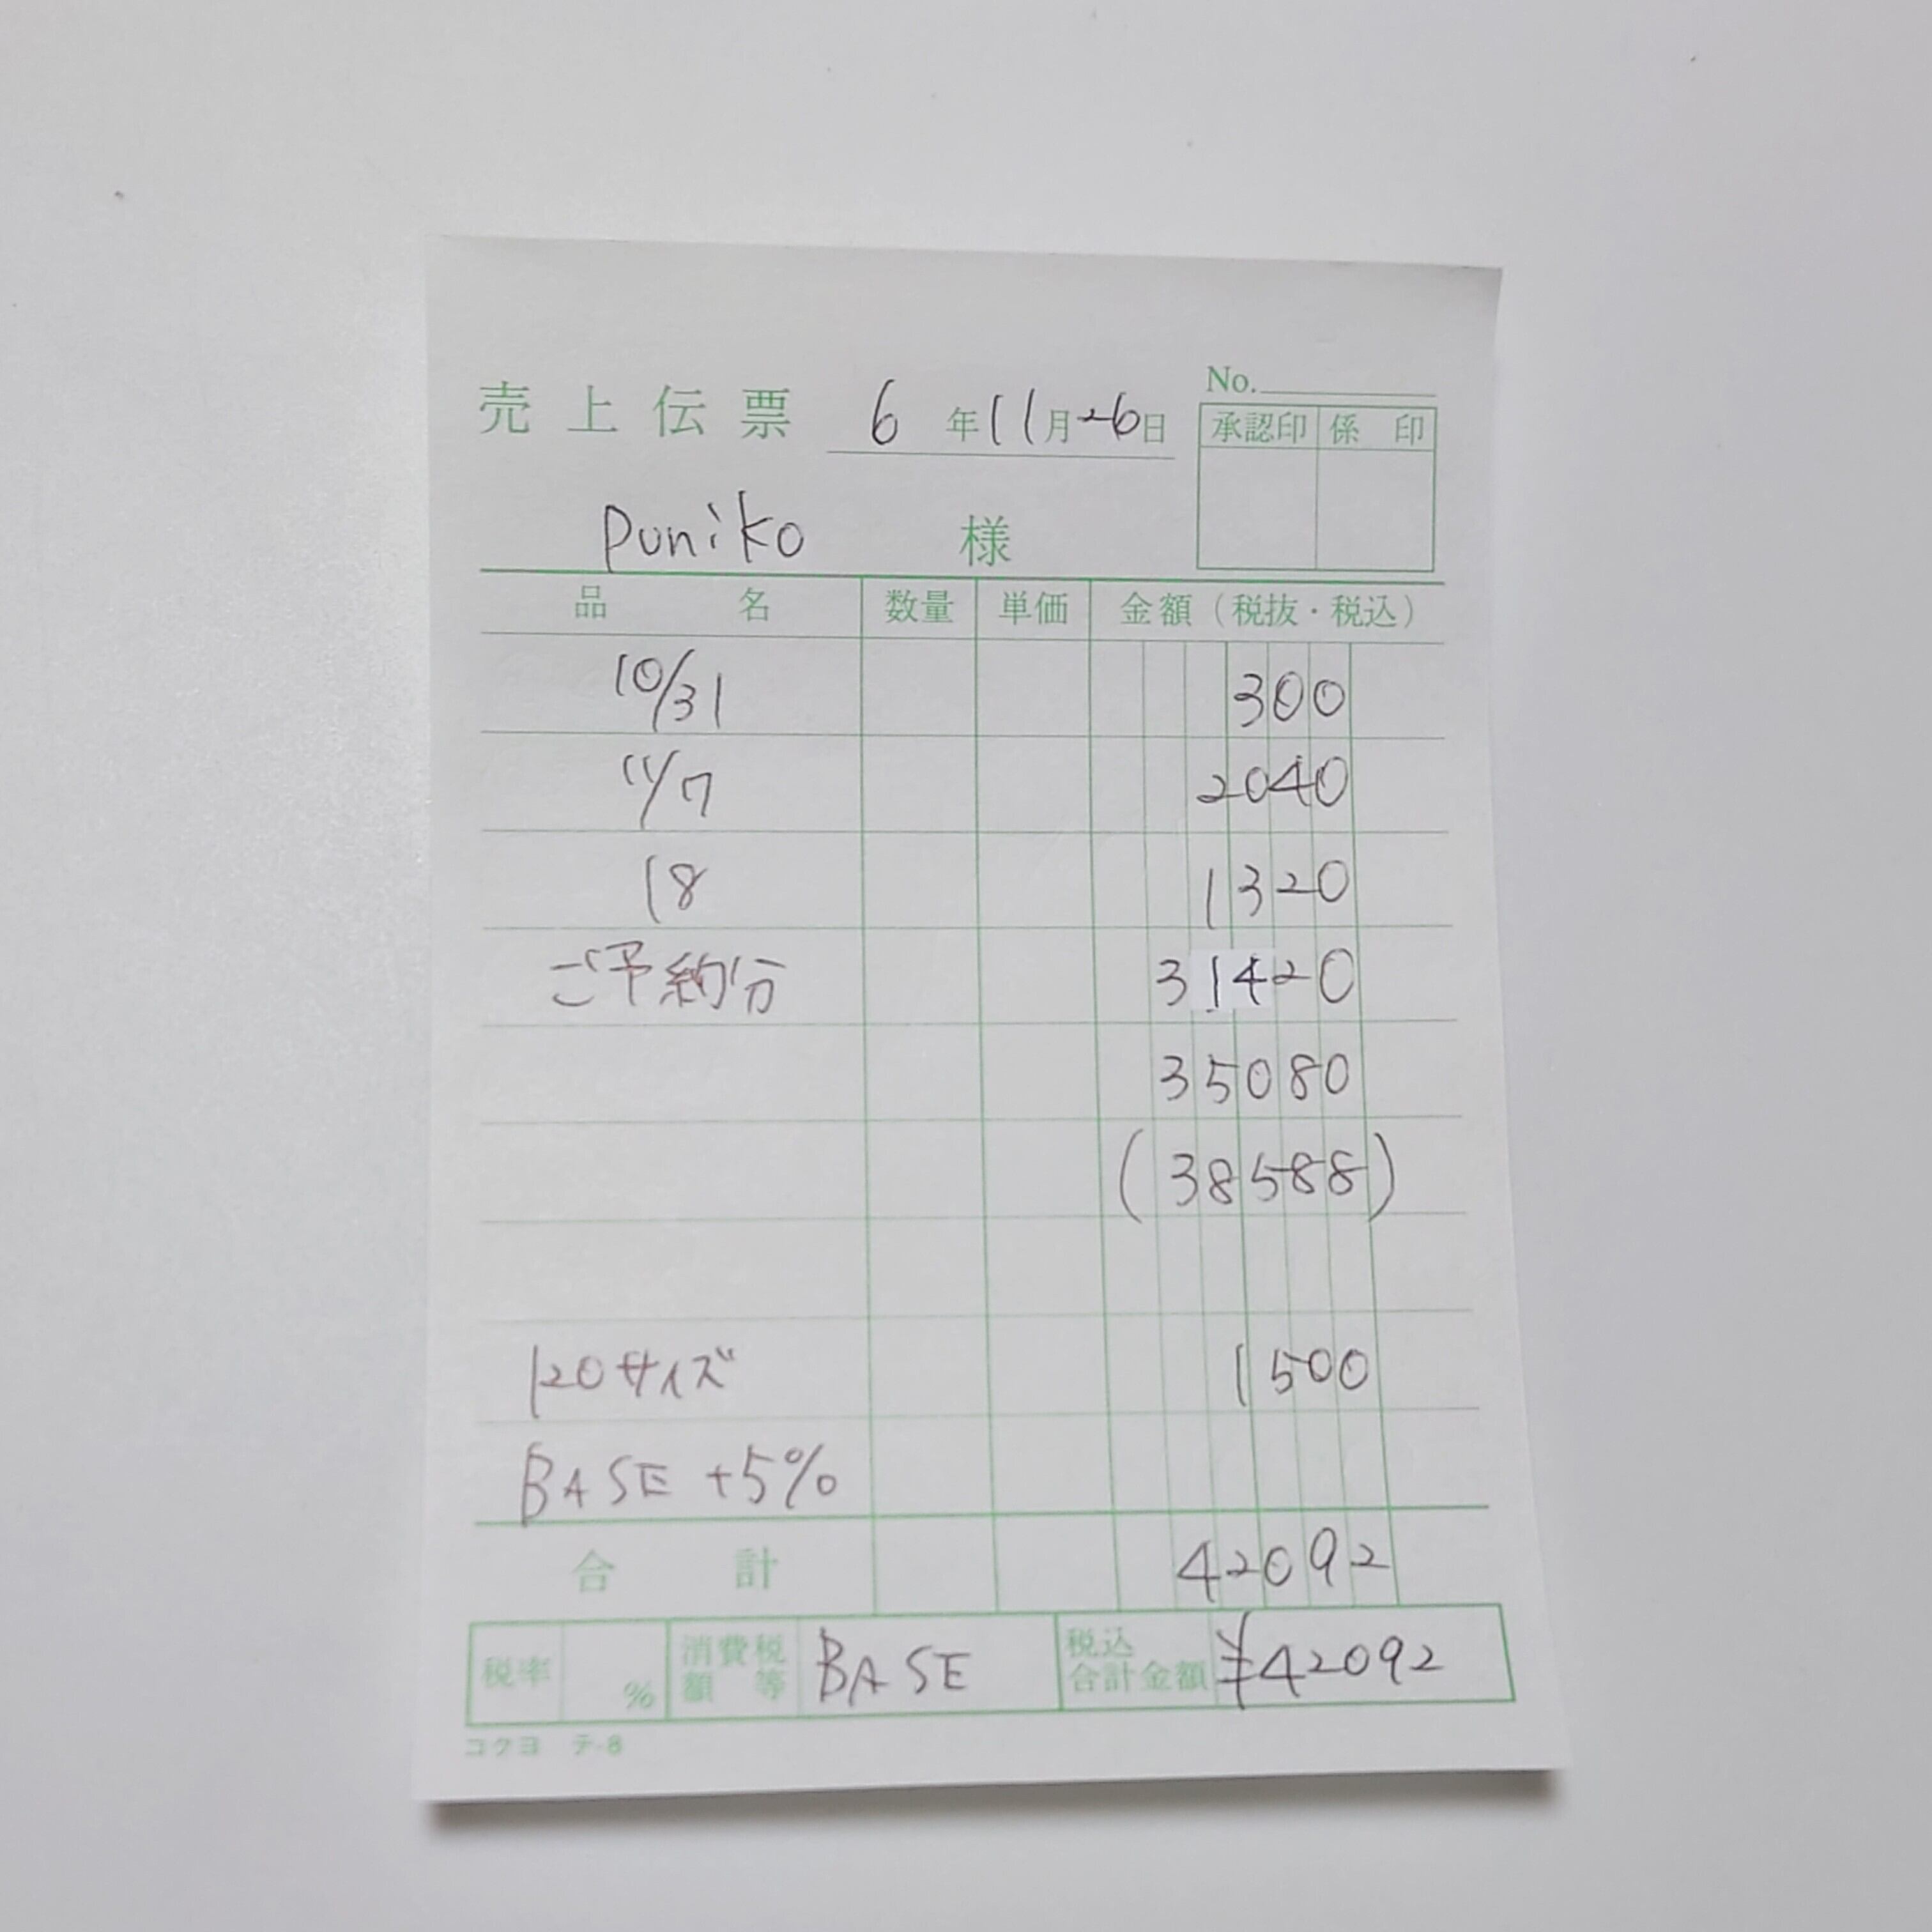 No.
売上伝票 6年11月26日
承認印 係印
puniko 様
品名 数量 単価 金額(税抜・税込)
10/31 300
11/7 2040
18 1320
ご予約分 31420
35080
(38588)
120サイズ 1500
BASE +5%
合計 42092
税率 % 消費税額等 BASE 税込合計金額 ¥42092
コクヨ テ-8